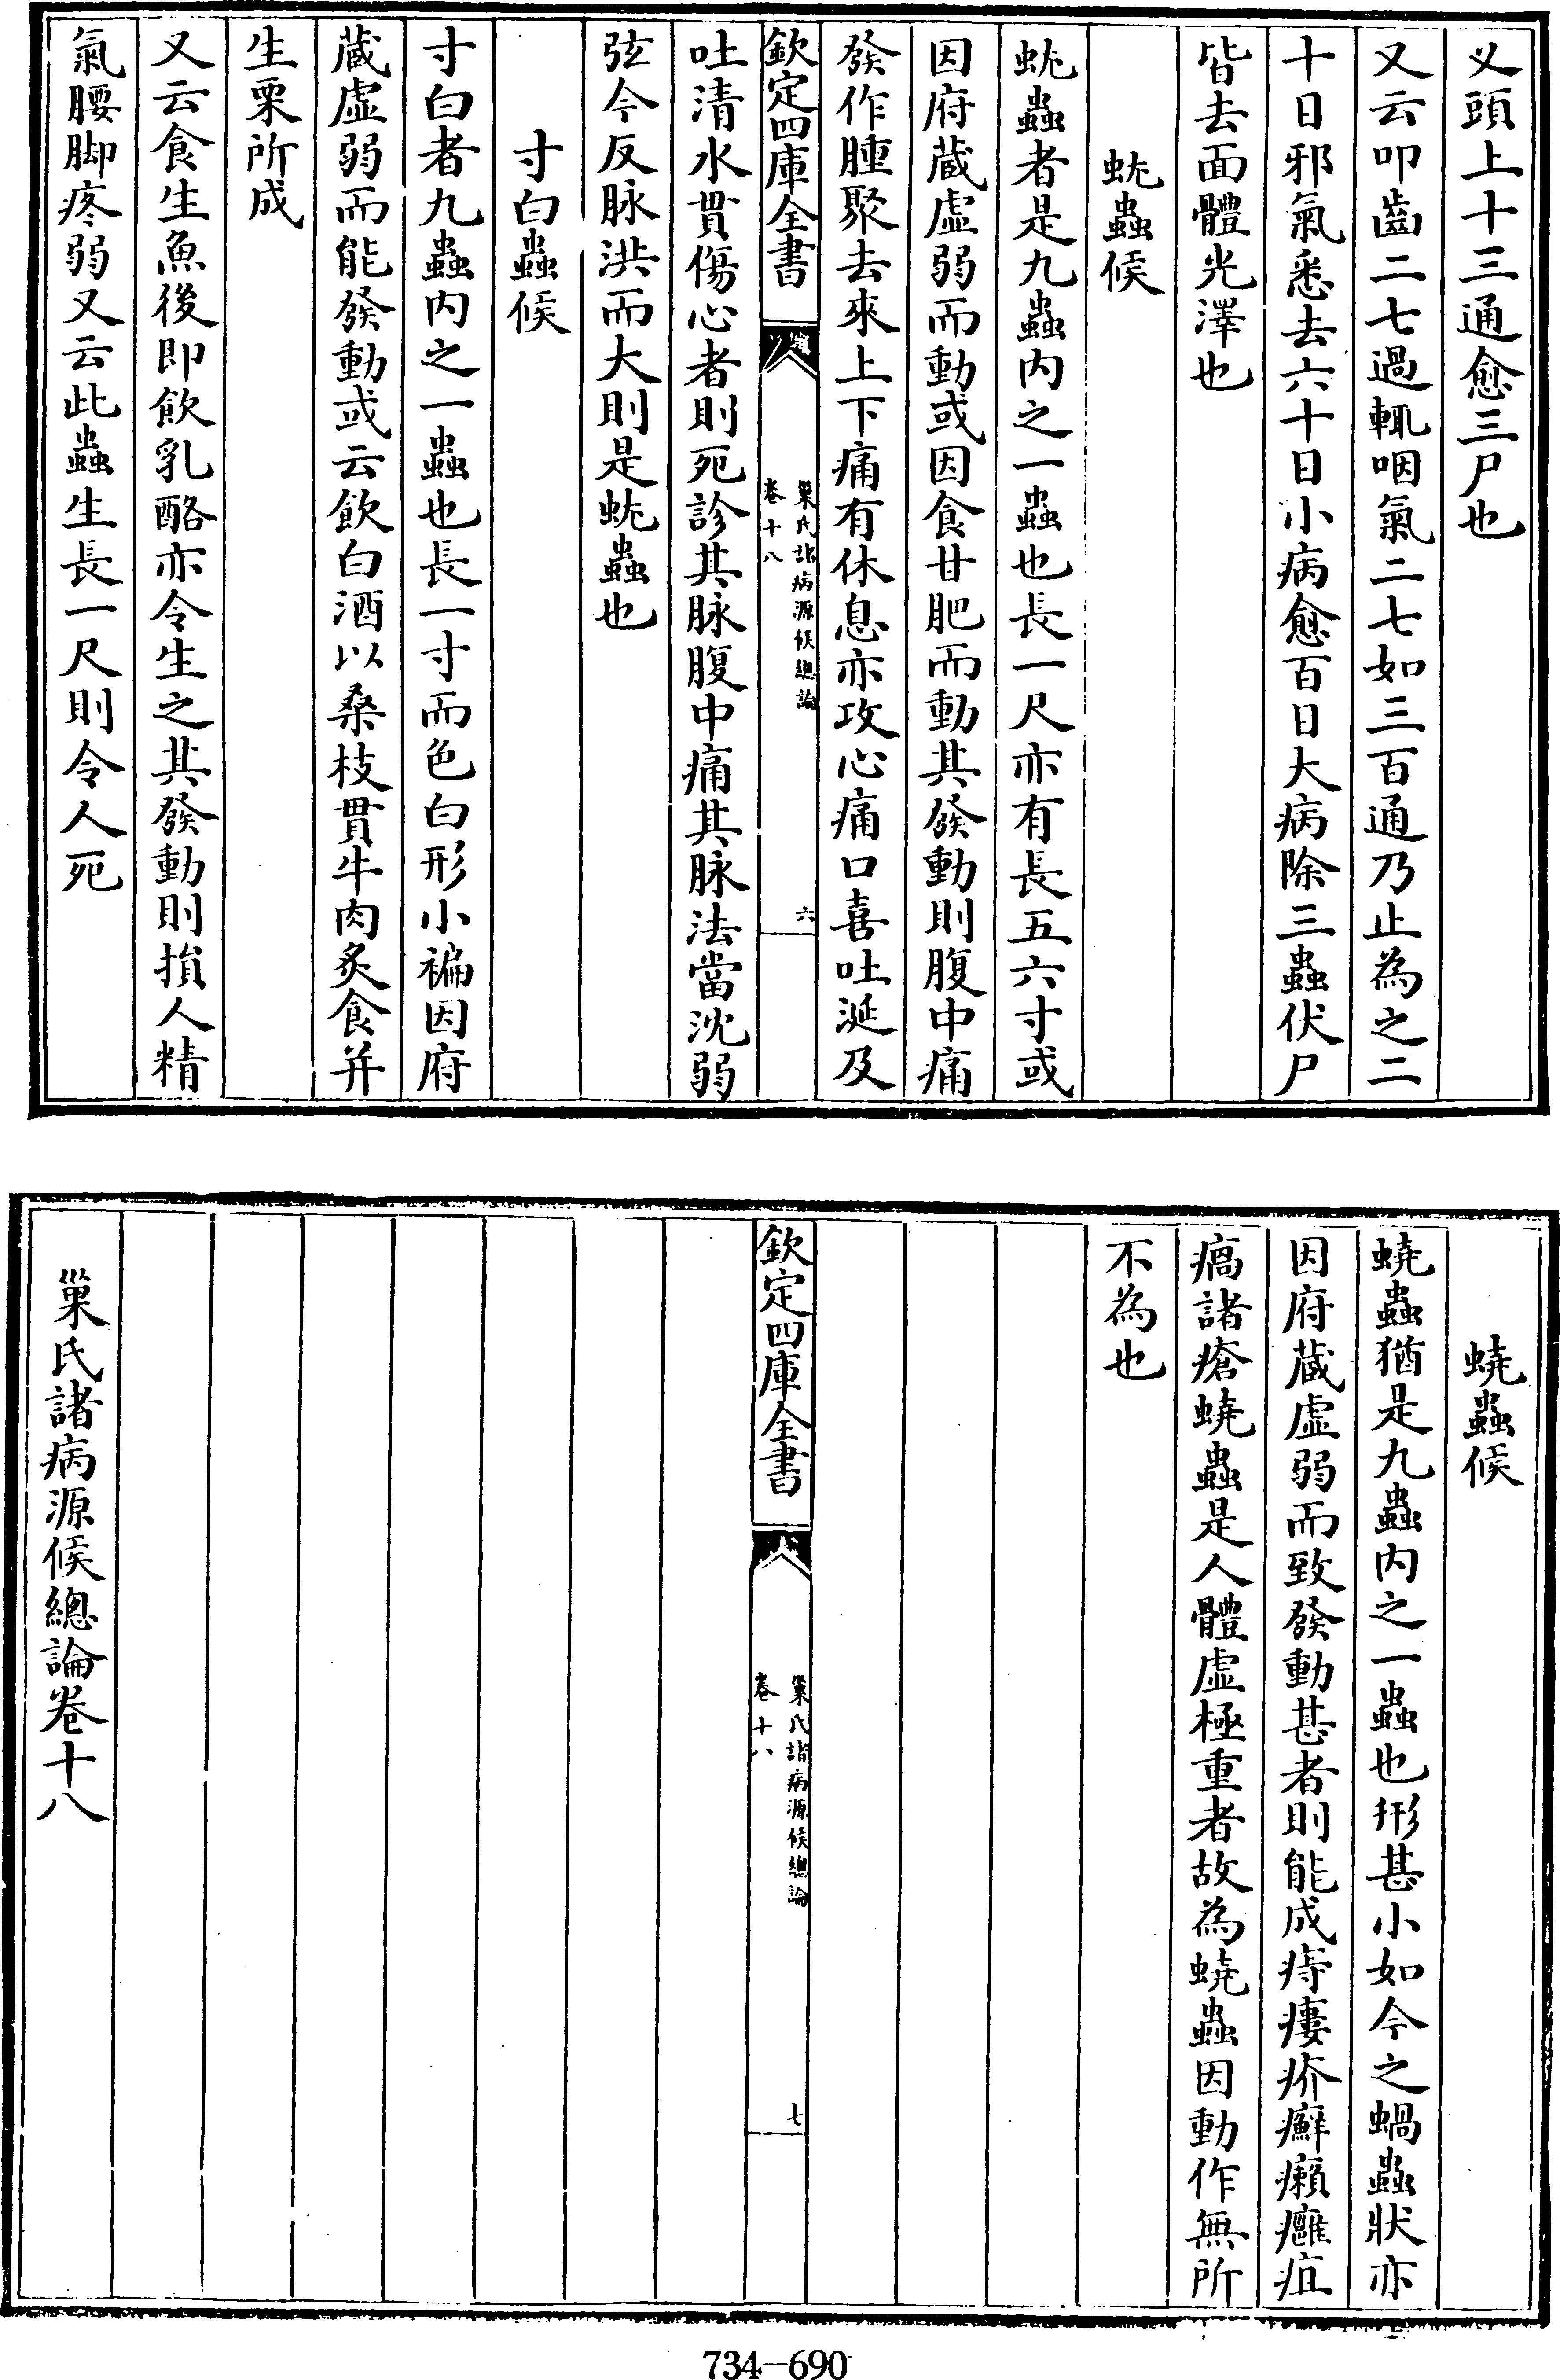 乂頭上十三通愈三尸也
又云叩齒二七過輒咽氣二七如三百通乃止為之二
十日邪氣悉去六十日小病愈百日大病除三蟲伏尸
皆去面體光澤也
蚘蟲候
蚘蟲者是九蟲内之一蟲也長一尺亦有長五六寸或
因府藏虛弱而動或因食甘肥而動其發動則腹中痛
發作腫聚去來上下痛有休息亦攻心痛口喜吐涎及
欽定四庫全書
巢氏諸病源候總論
卷十八
六
吐清水貫傷心者則死診其脉腹中痛其脉法當沈弱
弦今反脉洪而大則是蚘蟲也
寸白蟲候
寸白者九蟲内之一蟲也長一寸而色白形小褊因府
藏虛弱而能發動或云飲白酒以桑枝貫牛肉炙食并
生栗所成
又云食生魚後即飲乳酪亦令生之其發動則損人精
氣腰脚疼弱又云此蟲生長一尺則令人死
蟯蟲候
蟯蟲猶是九蟲内之一蟲也形甚小如今之蝸蟲狀亦
因府藏虛弱而致發動甚者則能成痔瘻疥癬癩癰疽
瘑諸瘡蟯蟲是人體虛極重者故為蟯蟲因動作無所
不為也
欽定四庫全書
巢氏諸病源候總論
卷十八
七
巢氏諸病源候總論卷十八
734-690